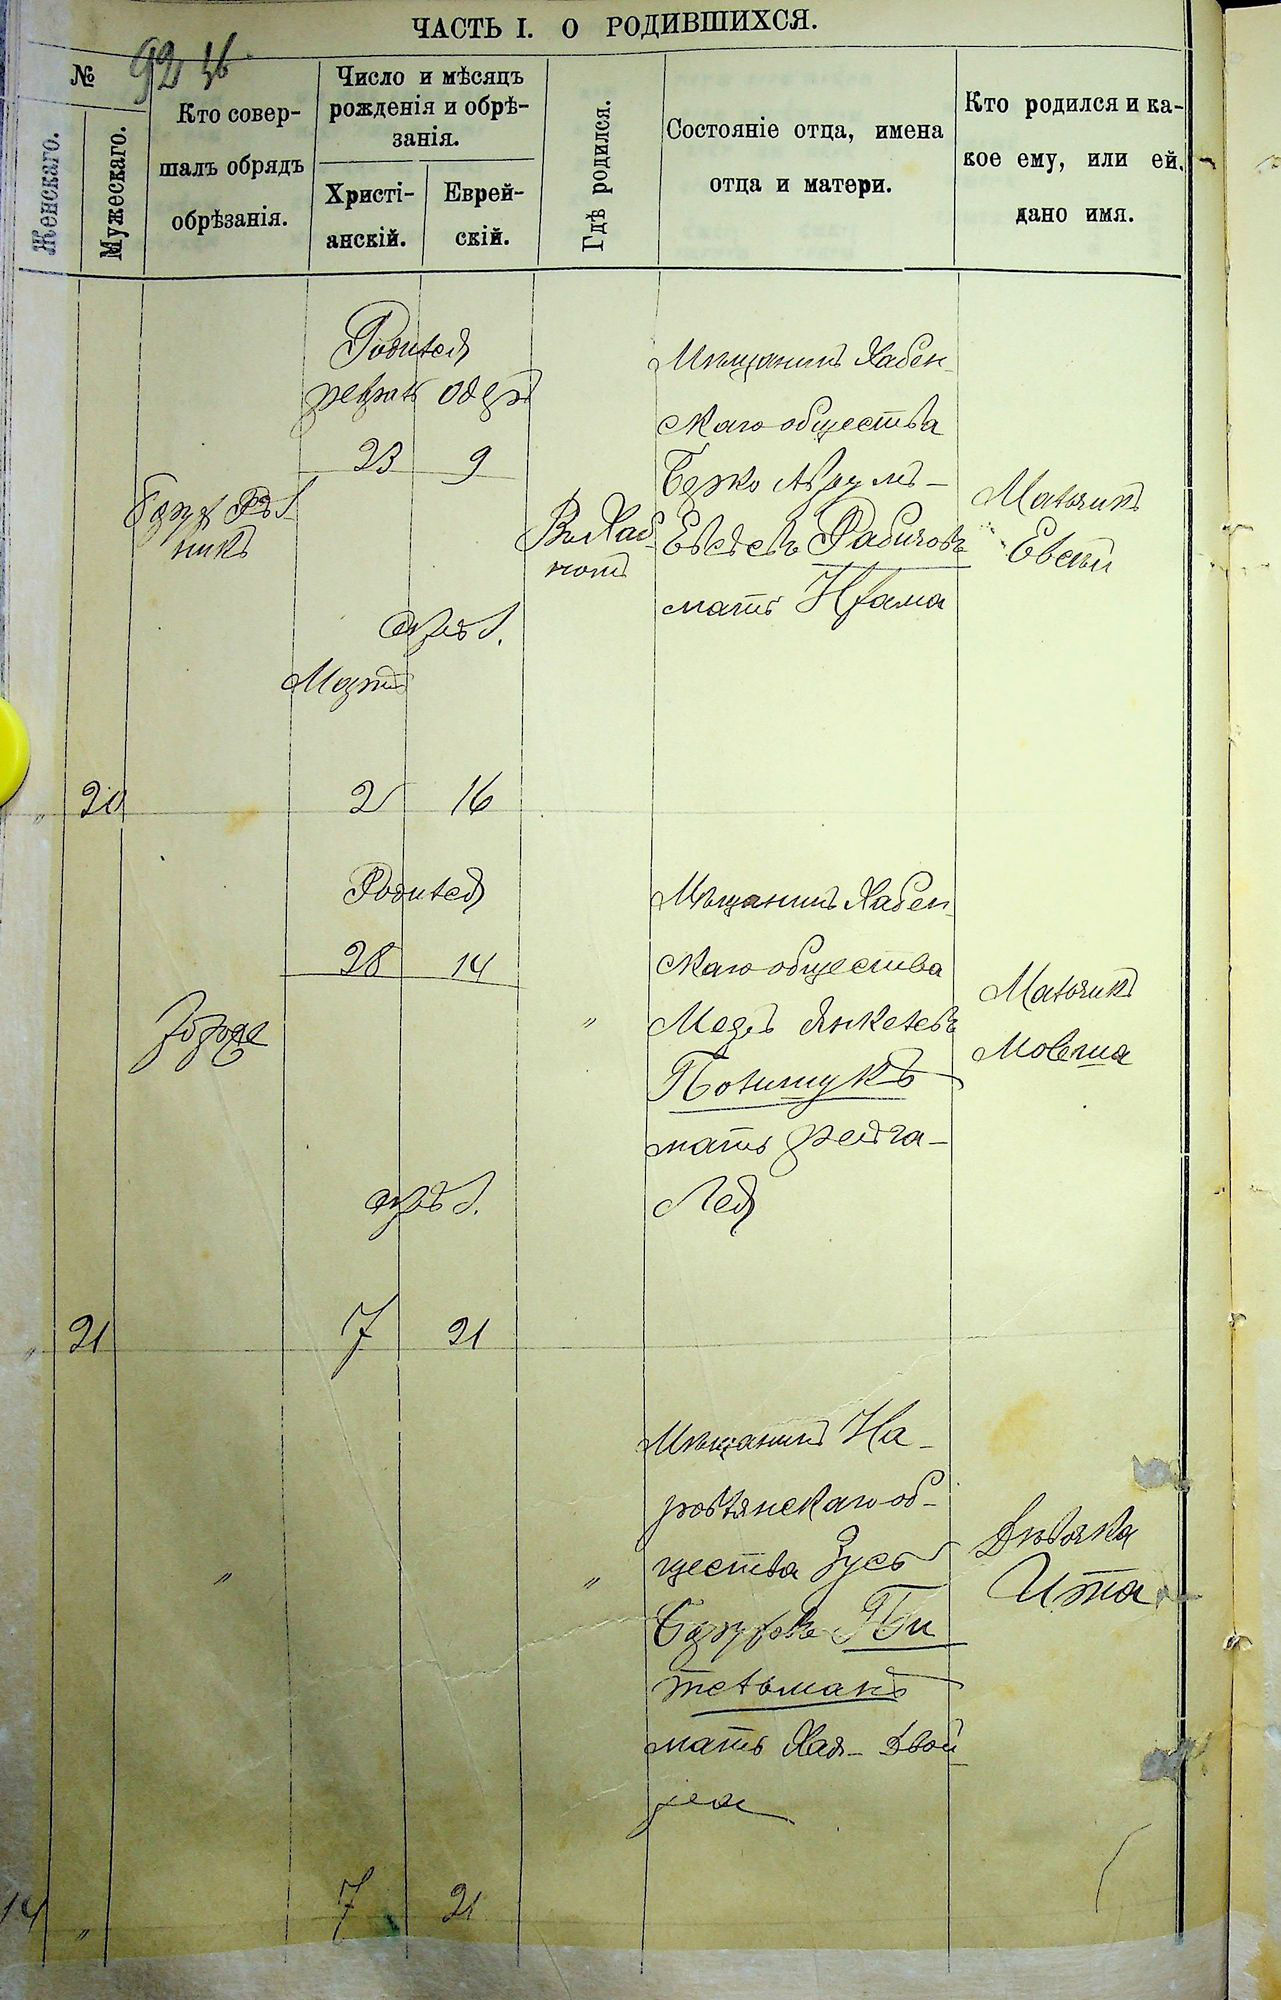 ЧАСТЬ I. О РОДИВШИХСЯ.
№
92
Женскаго.
Мужескаго.
Кто совер-
шалъ обрядъ
обрѣзанія.
Число и мѣсяцъ
рожденія и обрѣ-
занія.
Христі-
анскій.
Еврей-
скій.
Гдѣ родился.
Состояніе отца, имена
отца и матери.
Кто родился и ка-
кое ему, или ей,
дано имя.
20
Родился
23 9
обрѣз.
Мартъ
2 16
Мѣщанинъ Хабен-
скаго общества
Берко Аврумъ-
Евсѣевъ Рабичовъ
мать
Мальчикъ
Евсѣй
21
Родился
28 14
обрѣз.
7 21
"
Мѣщанинъ Хабен-
скаго общества
Мееръ Янкелевъ
Полищукъ
мать Фейга-
Лея
Мальчикъ
Мовша
14 "
"
7 21
"
Мѣщанинъ На-
ровлянскаго об-
щества Зусь
Пи
тельманъ
мать Хая-Двой
ра
Дѣвочка
Ита